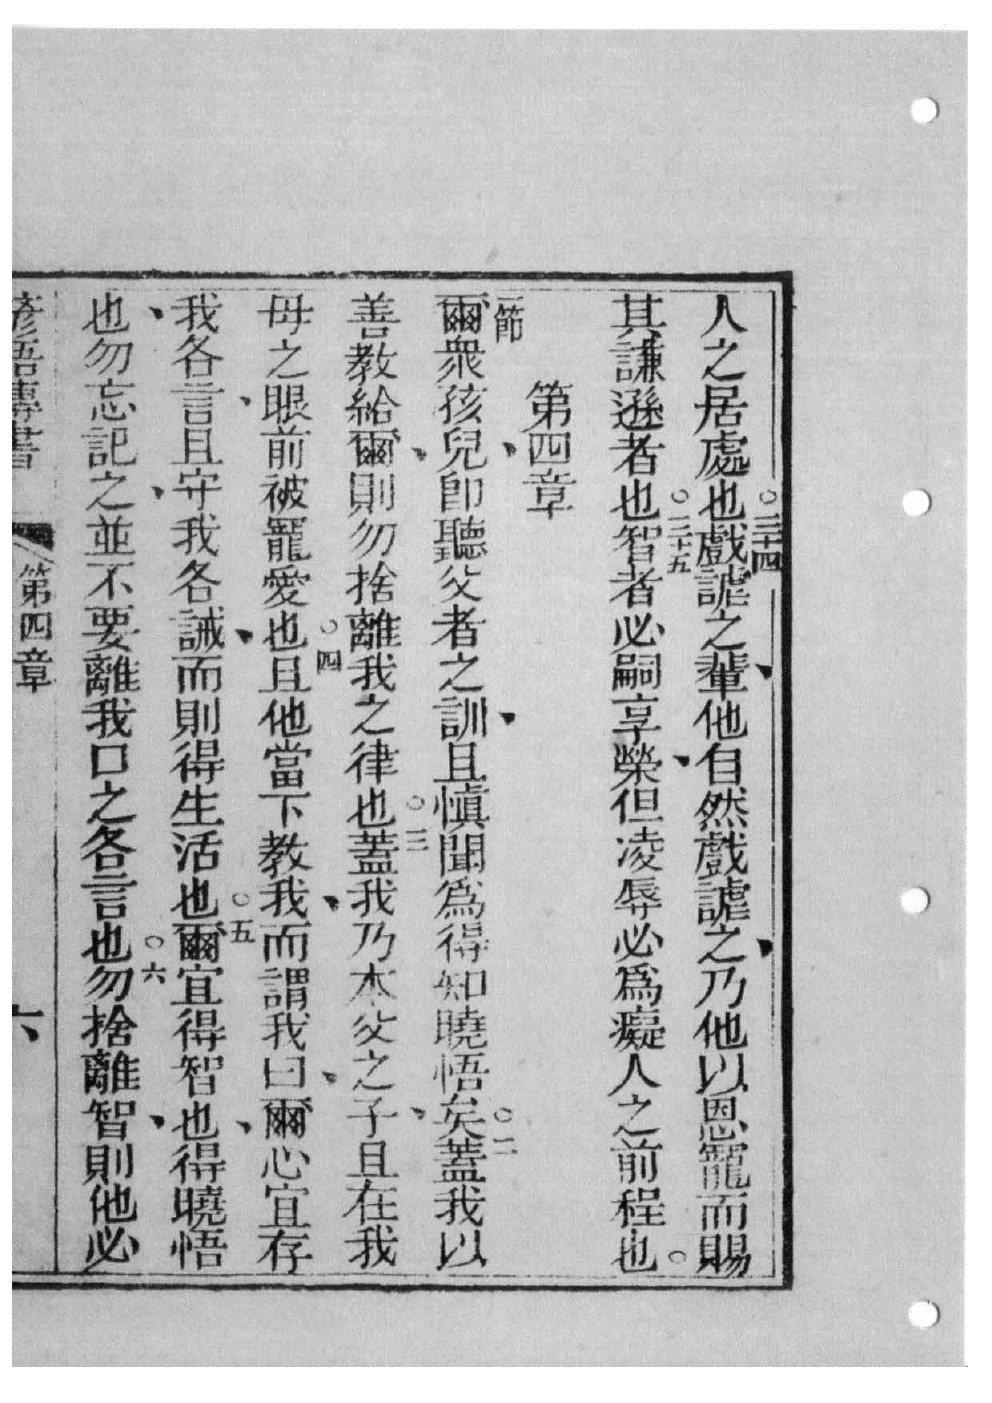 人之居處也○三十四戲謔之輩他自然戲謔之乃他以恩寵而賜
其謙遜者也○三十五智者必嗣享榮但凌辱必為癡人之前程也○
第四章
一節爾衆孩兒卽聽父者之訓且慎聞為得知曉悟矣○二蓋我以
善教給爾則勿捨離我之律也○三蓋我乃本父之子且在我
母之眼前被寵愛也○四且他當下教我而謂我曰爾心宜存
我各言且守我各誡而則得生活也○五爾宜得智也得曉悟
也勿忘記之並不要離我口之各言也○六勿捨離智則他必
諺語傳書 第四章 六